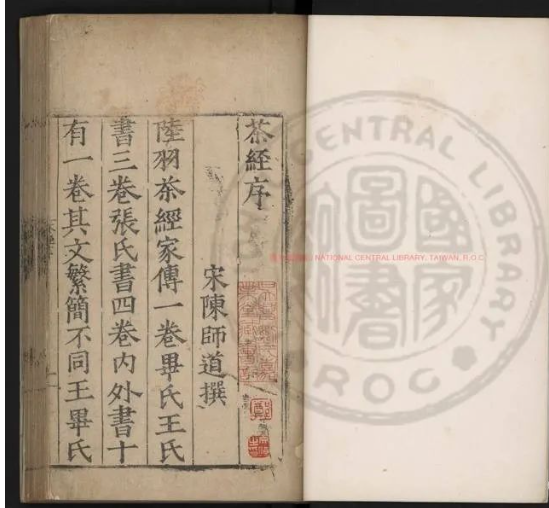 茶經序
宋陳師道撰
陸羽茶經家傳一卷畢氏王氏
書三卷張氏書四卷内外書十
有一卷其文繁簡不同王畢氏
NATIONAL CENTRAL LIBRARY, TAIWAN, R.O.C.
CENTRAL LIBRARY
R.O.C
國家圖書館